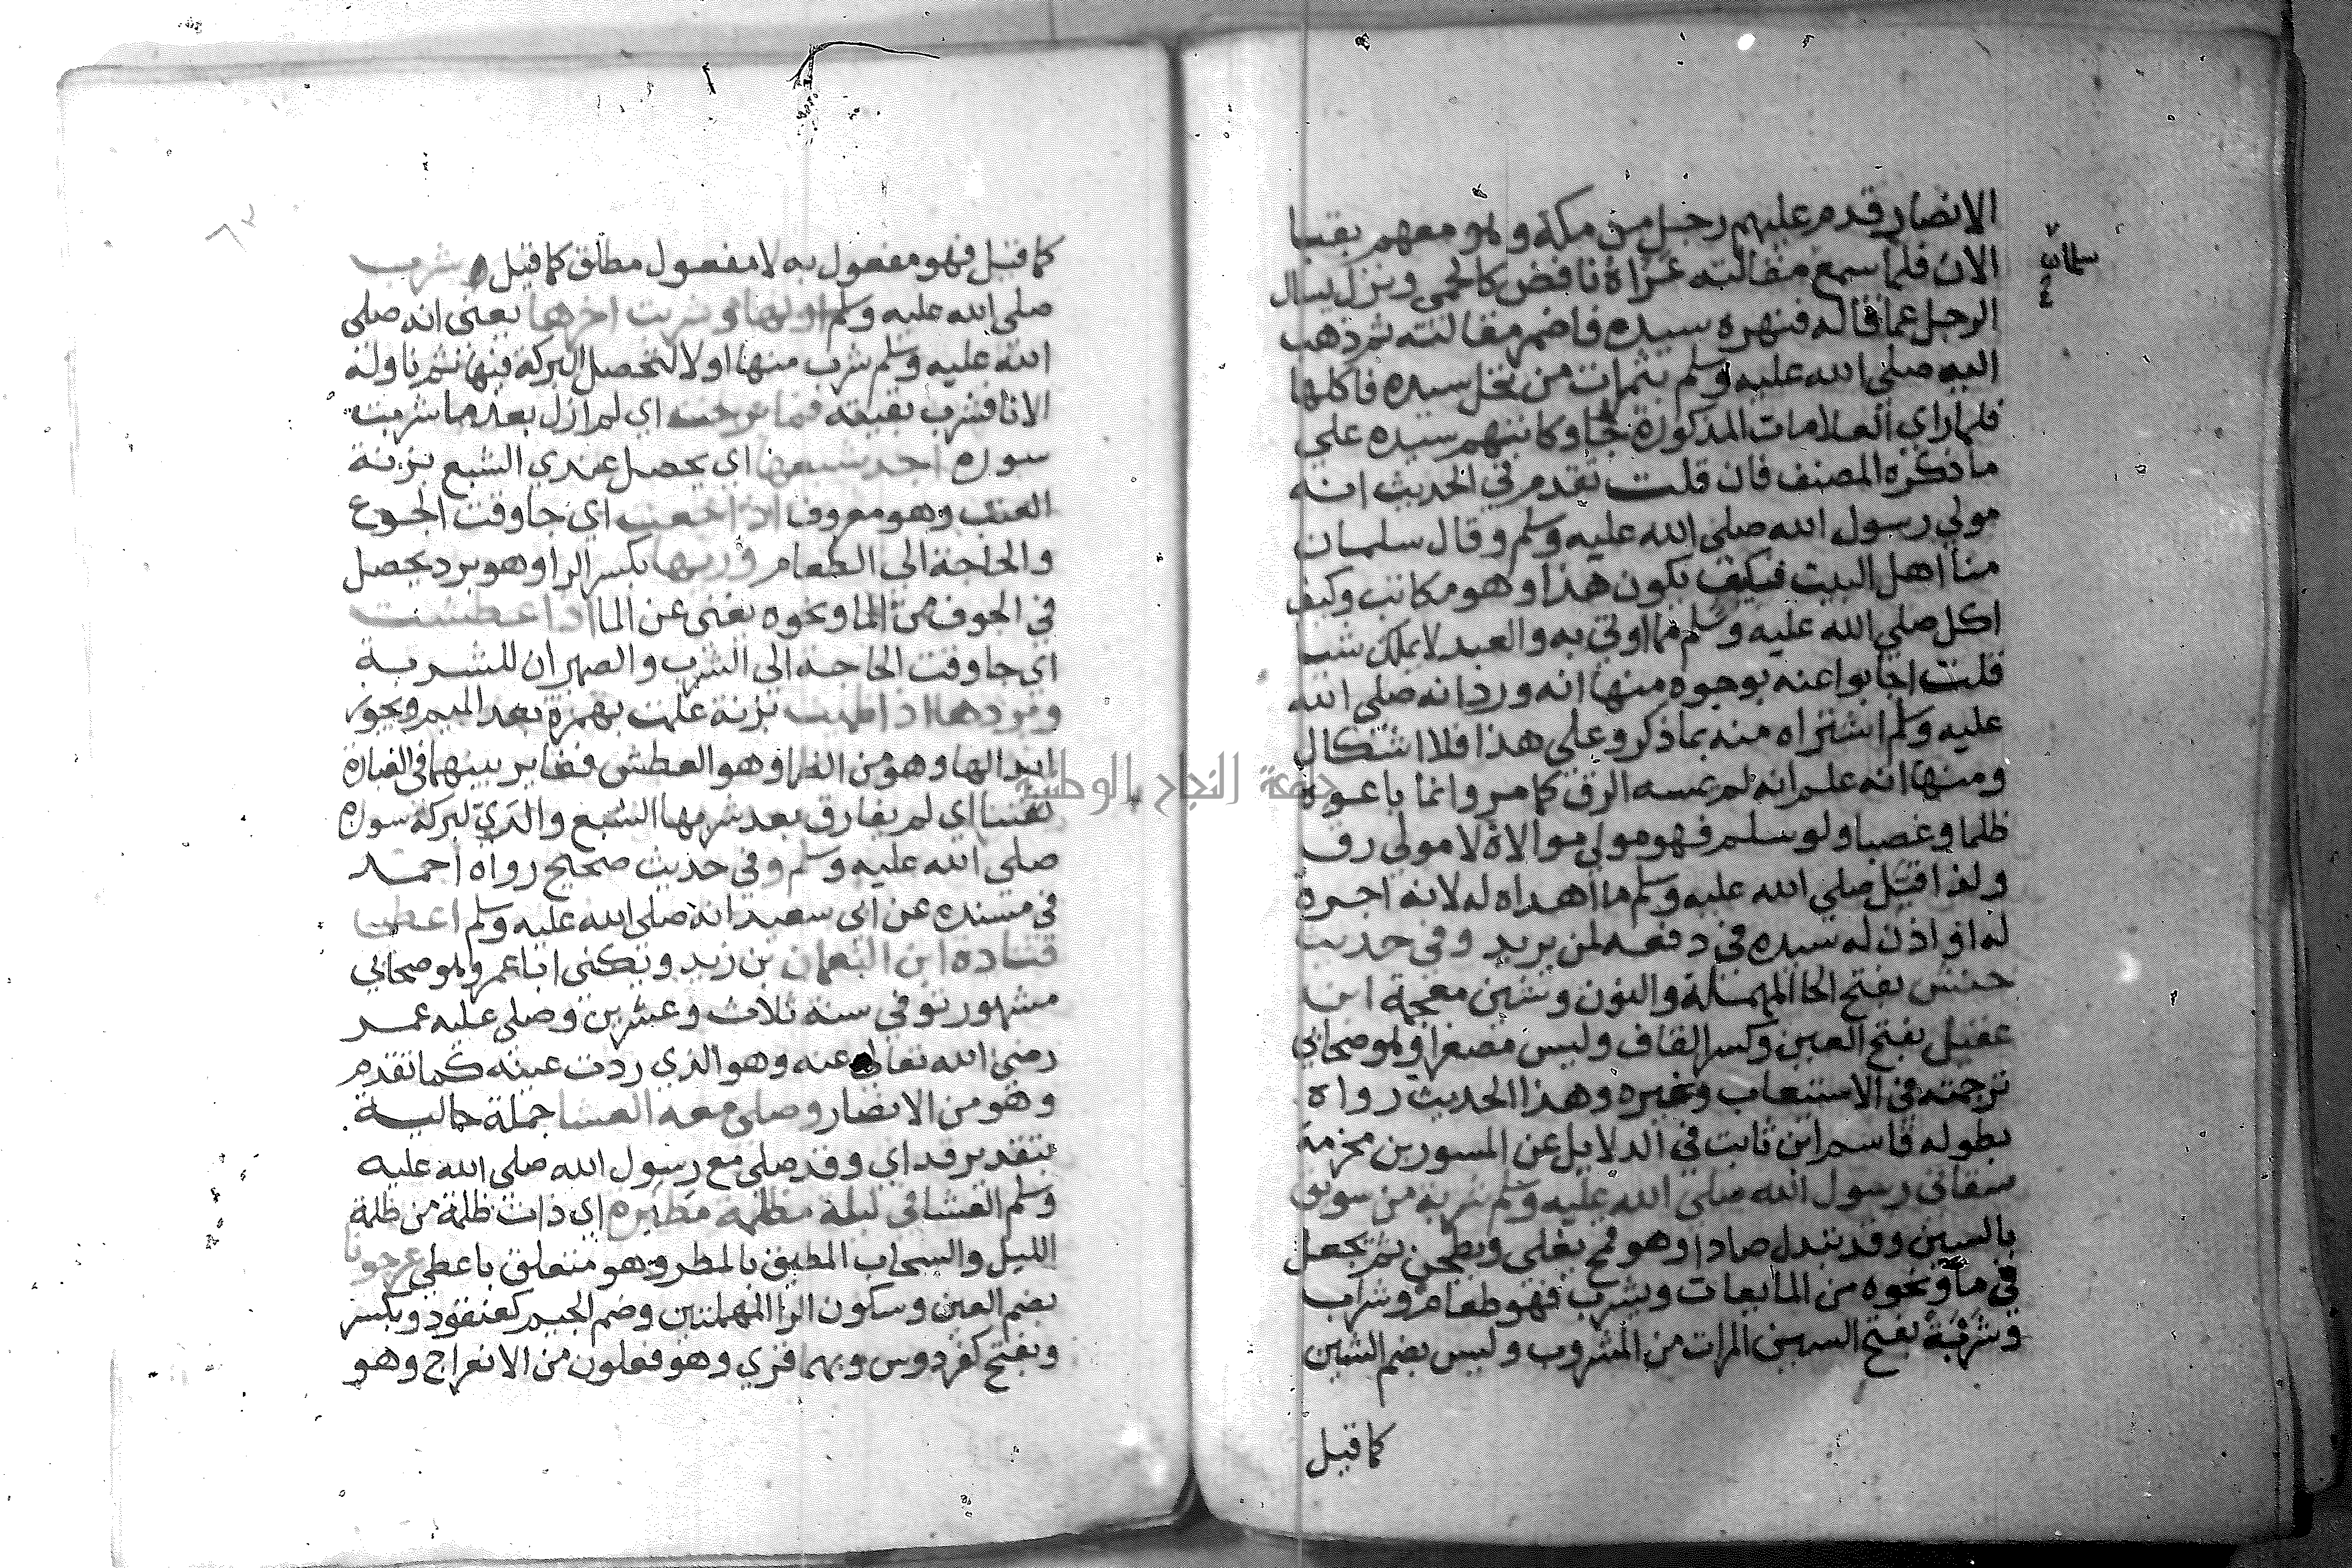 الانصار قدم عليهم رجل من مكة وهو معهم بقبا
الان فلما سمع مقالته عراه نافض كالحمي ونزل يسال
سلمان
الرجل عما قاله فنهره سيده فاضمر مقالته ثم ذهب
اليه صلي الله عليه وسلم بتمرات من نخل سيده فاكلها
فلما راي العلامات المذكورة جا وكاتبهم سيده علي
ما ذكره المصنف فان قلت تقدم في الحديث انه
مولي رسول الله صلي الله عليه وسلم وقال سلمان
منا اهل البيت فكيف يكون هذا وهو مكاتب وكيف
اكل صلي الله عليه وسلم مما اوتي به والعبد لا يملك شيا
قلت اجابوا عنه بوجوه منها انه ورد انه صلي الله
عليه وسلم اشتراه منه بما ذكر وعلي هذا فلا اشكال
ومنها انه علم انه لم يمسه الرق كما مر وانما باعوه
ظلما وغصبا ولو سلم فهو مولي موالاة لا مولي رق
ولذا قبل صلي الله عليه وسلم ما اهداه له لانه اجرة
له او اذن له سيده في دفعه لمن يريد وفي حديث
حنش بفتح الحا المهملة والنون وشين معجمة ابن
عقيل بفتح العين وكسر القاف وليس مصغرا وهو صحابي
ترجمته في الاستيعاب وغيره وهذا الحديث رواه
بطوله قاسم ابن ثابت في الدلايل عن المسور بن مخرمة
سقاني رسول الله صلي الله عليه وسلم شربة من سويق
بالسين وقد تبدل صادا وهو قمح يغلي ويطحن ثم يجعل
في ما ونحوه من المايعات ويشرب فهو طعام وشراب
وشربة بفتح الشين المرات من المشروب وليس بضم الشين
كما قيل
كما قيل فهو مفعول به لا مفعول مطلق كما قيل شرب
صلي الله عليه وسلم اولها وشربت اخرها يعني انه صلي
الله عليه وسلم شرب منها اولا لتحصل البركة فيها ثم ناوله
الانا فشرب بقيته فما برحت اي لم ازل بعد ما شربت
سوره اجد شبعها اي يحصل عندي الشبع بزنة
العنب وهو معروف اذا جعت اي جا وقت الجوع
والحاجة الي الطعام وريها بكسر الرا وهو برد يحصل
في الجوف من الما ونحوه يغني عن الما اذا عطشت
اي جا وقت الحاجة الي الشرب والضميران للشربة
وبردها اذا ظميت بزنة علمت بهمزة بعد الميم ويجوز
ابدالها وهو من الظما وهو العطش فغاير بينهما في العبارة
تفننا اي لم يفارق بعد شربها الشبع والري لبركة سوره
صلي الله عليه وسلم وفي حديث صحيح رواه احمد
في مسنده عن ابي سعيد انه صلي الله عليه وسلم اعطي
قتادة ابن النعمان بن زيد ويكني ابا عمر وهو صحابي
مشهور توفي سنة ثلاث وعشرين وصلي عليه عمر
رضي الله تعالي عنه وهو الذي ردت عينه كما تقدم
وهو من الانصار وصلي معه العشا جملة حالية
بتقدير قد اي وقد صلي مع رسول الله صلي الله عليه
وسلم العشا في ليلة مظلمة مطيرة اي ذات ظلمة من ظلمة
الليل والسحاب المطبق بالمطر وهو متعلق باعطي عرجونا
بضم العين وسكون الرا المهملتين وضم الجيم كعنقود وبكسر
وبفتح كفردوس وبهما قري وهو فعلون من الانعراج وهو
جامعة النجاح الوطنية